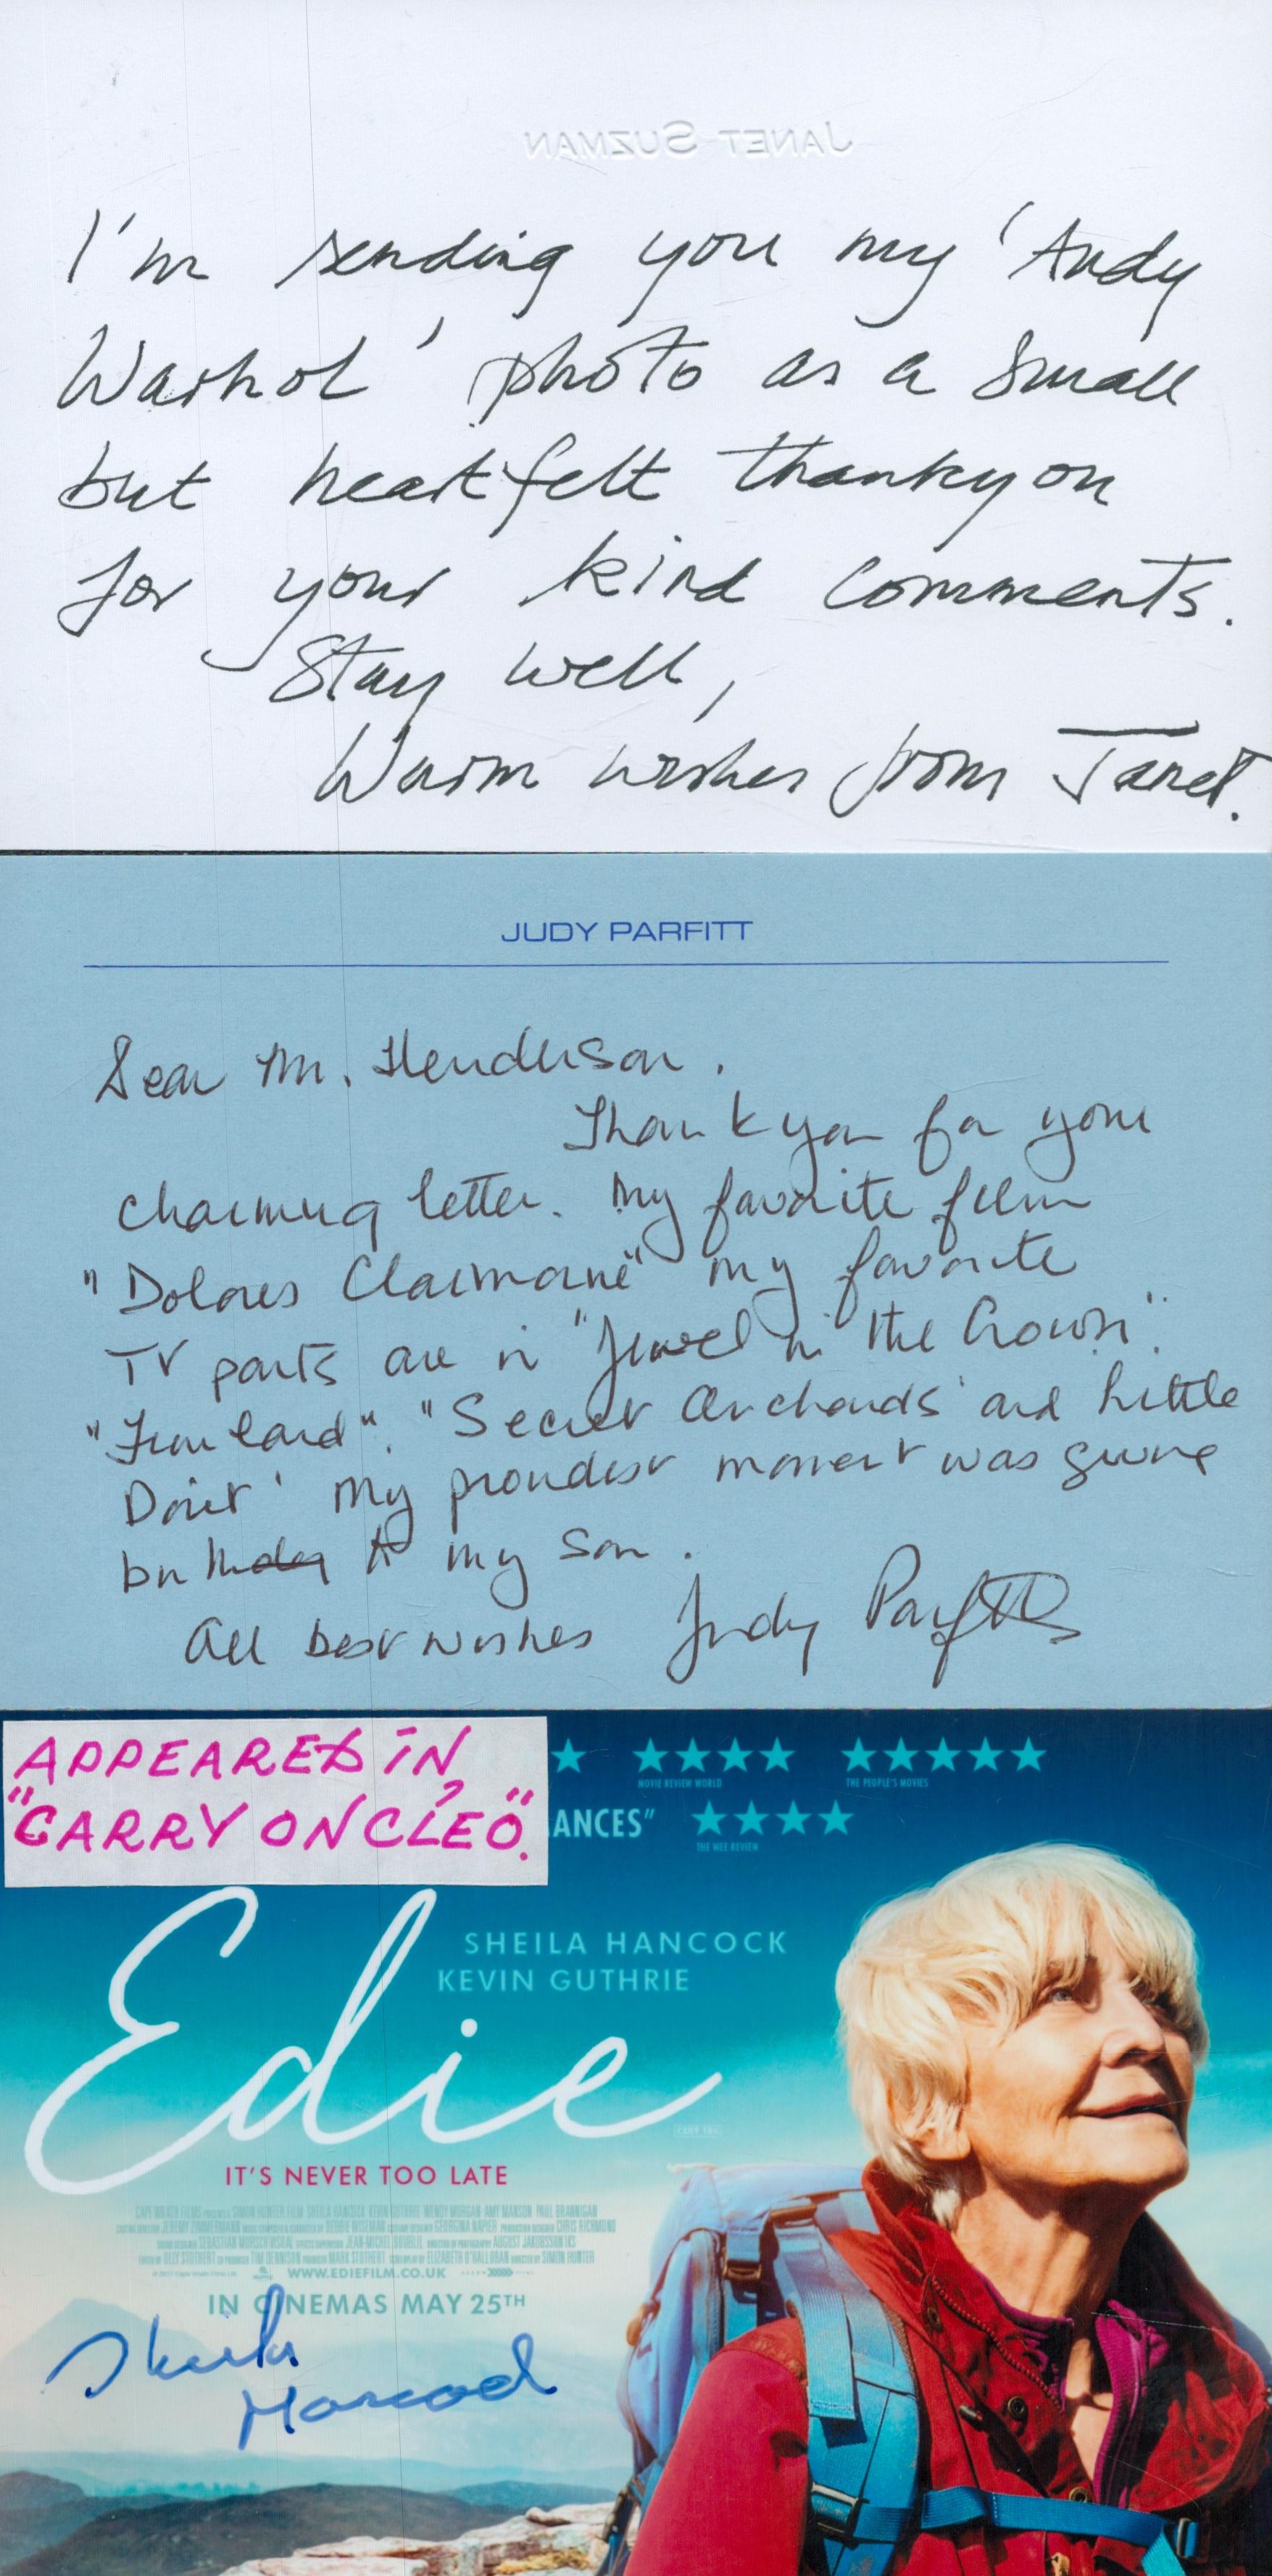 JANET SUZMAN
I'm sending you my 'Andy
Warhol' photo as a small
but heartfelt thankyou
for your kind comments.
Stay well,
Warm wishes from Janet.
JUDY PARFITT
Dear Mr. Henderson.
Thank you for your
charming letter. My favorite film
"Dolores Claiborne" my favorite
TV parts are in "Jewel in the Crown".
"Funland". "Secret Orchards' and Little
Dorit' My proudest moment was giving
to my son.
All best wishes Judy Parfitt
APPEARED IN
"CARRY ON CLEO".
MOVIE REVIEW WORLD
THE PEOPLE'S MOVIES
ANCES"
THE WEE REVIEW
Edie
SHEILA HANCOCK
KEVIN GUTHRIE
IT'S NEVER TOO LATE
WWW.EDIEFILM.CO.UK
IN CINEMAS MAY 25TH
Sheila
Hancock